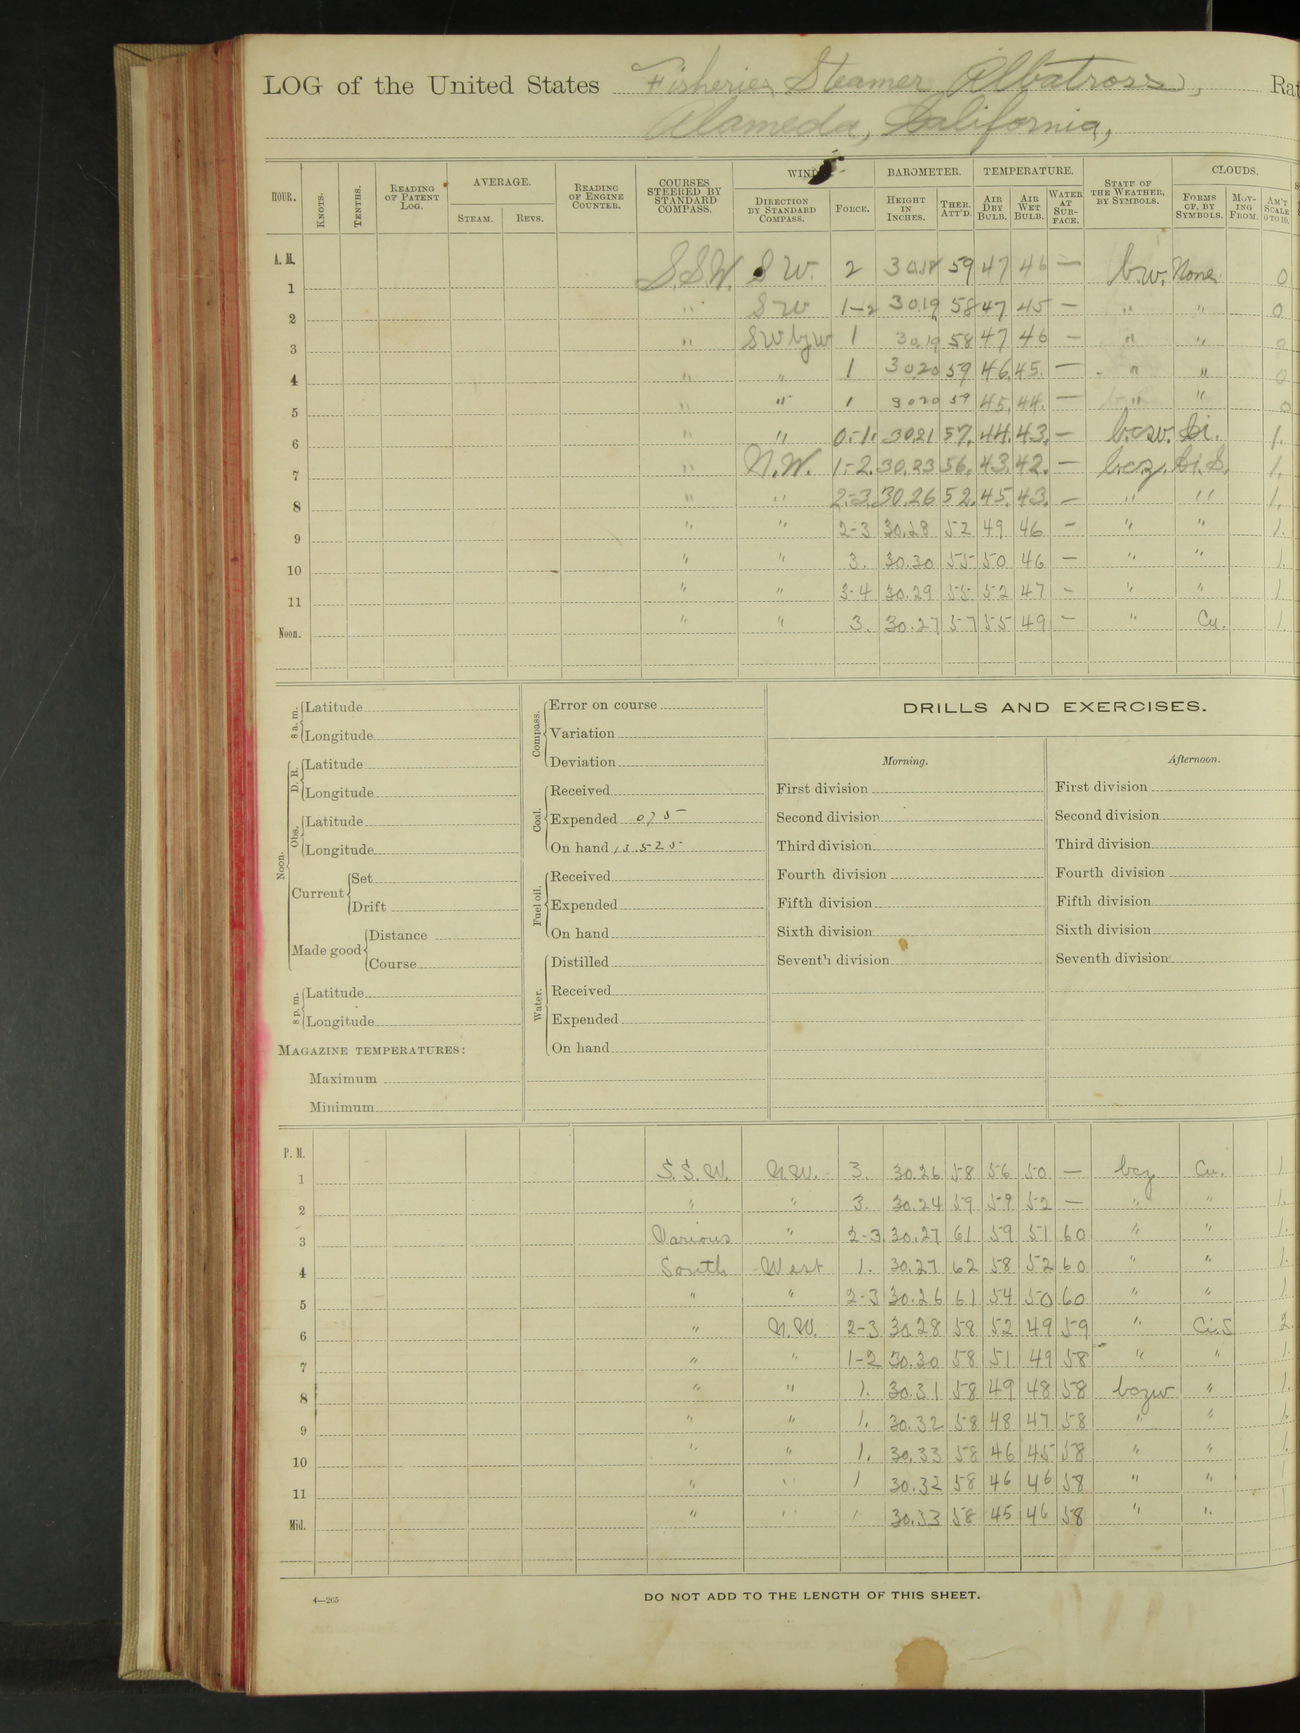 LOG of the United States Fisheries Steamer Albatross, Rat
Alameda, California,
HOUR. KNOTS. TENTHS. READING OF PATENT LOG. AVERAGE. STEAM. REVS. READING OF ENGINE COUNTER. COURSES STEERED BY STANDARD COMPASS. WIND. DIRECTION BY STANDARD COMPASS. FORCE. BAROMETER. HEIGHT IN INCHES. THER. ATT'D. TEMPERATURE. AIR DRY BULB. AIR WET BULB. WATER AT SURFACE. STATE OF THE WEATHER, BY SYMBOLS. CLOUDS. FORMS OF, BY SYMBOLS. MOVING FROM. AM'T SCALE 0 TO 10.
A. M.
1 S.S.W. SW. 2 30.18 59 47 46 — b.w. None. 0
2 " SW 1-2 30.19 58 47 45 — " " 0
3 " SW by W 1 30.19 58 47 46 — " " 0
4 " " 1 30.20 59 46. 45. — " " 0
5 " " 1 30.20 59 45. 44. — " " 0
6 " " 0.-1. 30.21 57. 44. 43. — b.c.w. Ci. 1.
7 " N.W. 1-2. 30.23 56. 43. 42. — b.c.z. Ci.S. 1.
8 " " 2-3. 30.26 52. 45. 43. — " " 1.
9 " " 2-3 30.28 52 49 46 — " " 1.
10 " " 3. 30.30 55 50 46 — " " 1.
11 " " 3-4 30.29 55 52 47 — " " 1.
Noon. " " 3. 30.27 57 55 49 — " Cu. 1.
8 a. m. Latitude
Longitude
Noon. D. R. Latitude
Longitude
Obs. Latitude
Longitude
Current Set
Drift
Made good Distance
Course
8 p. m. Latitude
Longitude
MAGAZINE TEMPERATURES:
Maximum
Minimum
Compass. Error on course
Variation
Deviation
Coal. Received
Expended 075
On hand 13 525
Fuel oil. Received
Expended
On hand
Water. Distilled
Received
Expended
On hand
DRILLS AND EXERCISES.
Morning.
First division
Second division
Third division
Fourth division
Fifth division
Sixth division
Seventh division
Afternoon.
First division
Second division
Third division
Fourth division
Fifth division
Sixth division
Seventh division
P. M.
1 S.S.W. N.W. 3. 30.26 58 56 50 — bcz Cu. 1.
2 " " 3. 30.24 59 59 52 — " " 1.
3 Various " 2-3 30.27 61 59 51 60 " " 1.
4 South West 1. 30.27 62 58 52 60 " " 1.
5 " " 2-3 30.26 61 54 50 60 " " 1.
6 " N.W. 2-3 30.28 58 52 49 59 " Ci.S 2.
7 " " 1-2 30.30 58 51 49 58 " " 1.
8 " " 1. 30.31 58 49 48 58 bczw " 1.
9 " " 1. 30.32 58 48 47 58 " " 1.
10 " " 1. 30.33 58 46 45 58 " " 1.
11 " " 1 30.32 58 46 46 58 " " 1
Mid. " " 1 30.33 58 45 46 58 " " 1
4—265
DO NOT ADD TO THE LENGTH OF THIS SHEET.